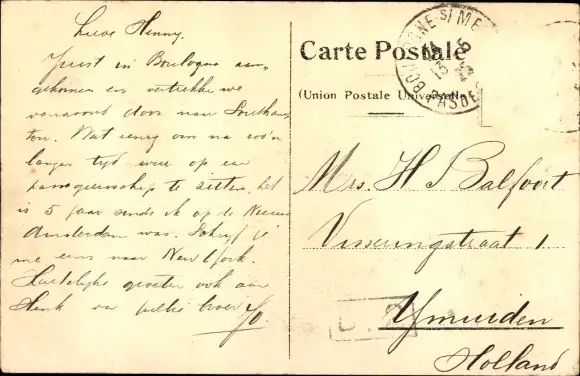 Lieve Henny.
Juist in Boulogne aan-
gekomen en vertrekken we
vanavond door naar Southamp
ton. Wat enig om na zo'n
lange tijd weer op een
passagiersschip te zitten, het
is 5 jaar sinds ik op de Nieuw
Amsterdam was. Schrijf je
me eens naar New York.
Hartelijke groeten ook aan
Henk van jullie
Jo.
Carte Postale
(Union Postale Universelle)
BOULOGNE S/ MER
PAS DE
Mrs. H Balfoort
Visseringstraat 1
Ymuiden
Holland